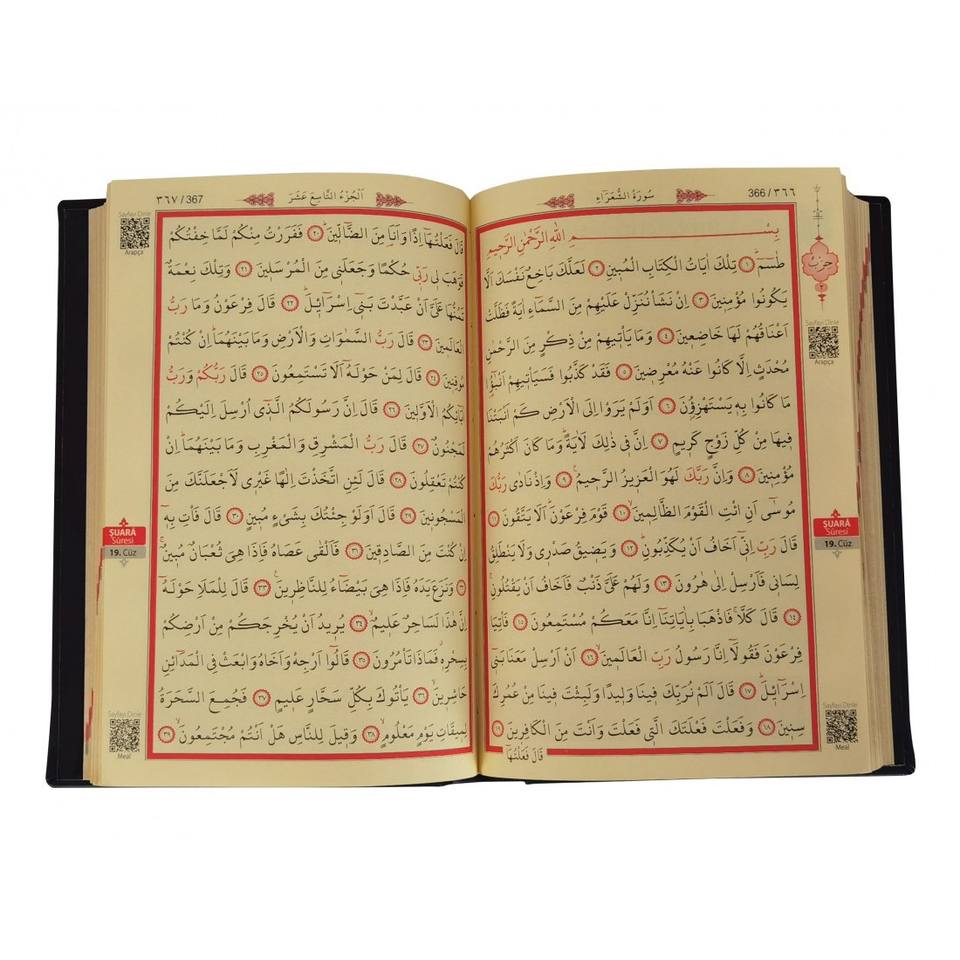 366 / ٣٦٦
سُورَةُ الشُّعَرَاءِ
بِسْمِ اللّٰهِ الرَّحْمٰنِ الرَّحِيمِ
طٰسٓمٓ ﴿١﴾ تِلْكَ اٰيَاتُ الْكِتَابِ الْمُبِينِ ﴿٢﴾ لَعَلَّكَ بَاخِعٌ نَفْسَكَ اَلَّا
يَكُونُوا مُؤْمِنِينَ ﴿٣﴾ اِنْ نَشَأْ نُنَزِّلْ عَلَيْهِمْ مِنَ السَّمَٓاءِ اٰيَةً فَظَلَّتْ
اَعْنَاقُهُمْ لَهَا خَاضِعِينَ ﴿٤﴾ وَمَا يَأْتِيهِمْ مِنْ ذِكْرٍ مِنَ الرَّحْمٰنِ
مُحْدَثٍ اِلَّا كَانُوا عَنْهُ مُعْرِضِينَ ﴿٥﴾ فَقَدْ كَذَّبُوا فَسَيَأْتِيهِمْ اَنْبٰٓؤُا
مَا كَانُوا بِهِ يَسْتَهْزِؤُنَ ﴿٦﴾ اَوَلَمْ يَرَوْا اِلَى الْاَرْضِ كَمْ اَنْبَتْنَا
فِيهَا مِنْ كُلِّ زَوْجٍ كَرِيمٍ ﴿٧﴾ اِنَّ فِي ذٰلِكَ لَاٰيَةً وَمَا كَانَ اَكْثَرُهُمْ
مُؤْمِنِينَ ﴿٨﴾ وَاِنَّ رَبَّكَ لَهُوَ الْعَزِيزُ الرَّحِيمُ ﴿٩﴾ وَاِذْ نَادٰى رَبُّكَ
مُوسٰٓى اَنِ ائْتِ الْقَوْمَ الظَّالِمِينَ ﴿١٠﴾ قَوْمَ فِرْعَوْنَ اَلَا يَتَّقُونَ ﴿١١﴾
قَالَ رَبِّ اِنِّٓي اَخَافُ اَنْ يُكَذِّبُونِ ﴿١٢﴾ وَيَضِيقُ صَدْرِي وَلَا يَنْطَلِقُ
لِسَانِي فَاَرْسِلْ اِلٰى هٰرُونَ ﴿١٣﴾ وَلَهُمْ عَلَيَّ ذَنْبٌ فَاَخَافُ اَنْ يَقْتُلُونِ
﴿١٤﴾ قَالَ كَلَّا فَاذْهَبَا بِاٰيَاتِنَٓا اِنَّا مَعَكُمْ مُسْتَمِعُونَ ﴿١٥﴾ فَأْتِيَا
فِرْعَوْنَ فَقُولَٓا اِنَّا رَسُولُ رَبِّ الْعَالَمِينَ ﴿١٦﴾ اَنْ اَرْسِلْ مَعَنَا بَنِٓي
اِسْرَٓائِلَ ﴿١٧﴾ قَالَ اَلَمْ نُرَبِّكَ فِينَا وَلِيدًا وَلَبِثْتَ فِينَا مِنْ عُمُرِكَ
سِنِينَ ﴿١٨﴾ وَفَعَلْتَ فَعْلَتَكَ الَّتِي فَعَلْتَ وَاَنْتَ مِنَ الْكَافِرِينَ ﴿١٩﴾
قَالَ فَعَلْتُهَٓا
حزب
٢
Sayfayı Dinle
Arapça
ŞUARÂ
Sûresi
19. Cüz
Sayfayı Dinle
Meal
٣٦٧ / 367
اَلْجُزْءُ التَّاسِعَ عَشَرَ
قَالَ فَعَلْتُهَٓا اِذًا وَاَنَا مِنَ الضَّٓالِّينَ ﴿٢٠﴾ فَفَرَرْتُ مِنْكُمْ لَمَّا خِفْتُكُمْ
فَوَهَبَ لِي رَبِّي حُكْمًا وَجَعَلَنِي مِنَ الْمُرْسَلِينَ ﴿٢١﴾ وَتِلْكَ نِعْمَةٌ
تَمُنُّهَا عَلَيَّ اَنْ عَبَّدْتَ بَنِٓي اِسْرَٓائِلَ ﴿٢٢﴾ قَالَ فِرْعَوْنُ وَمَا رَبُّ
الْعَالَمِينَ ﴿٢٣﴾ قَالَ رَبُّ السَّمٰوَاتِ وَالْاَرْضِ وَمَا بَيْنَهُمَا اِنْ كُنْتُمْ
مُوقِنِينَ ﴿٢٤﴾ قَالَ لِمَنْ حَوْلَهُٓ اَلَا تَسْتَمِعُونَ ﴿٢٥﴾ قَالَ رَبُّكُمْ وَرَبُّ
اٰبَٓائِكُمُ الْاَوَّلِينَ ﴿٢٦﴾ قَالَ اِنَّ رَسُولَكُمُ الَّذِٓي اُرْسِلَ اِلَيْكُمْ
لَمَجْنُونٌ ﴿٢٧﴾ قَالَ رَبُّ الْمَشْرِقِ وَالْمَغْرِبِ وَمَا بَيْنَهُمَا اِنْ
كُنْتُمْ تَعْقِلُونَ ﴿٢٨﴾ قَالَ لَئِنِ اتَّخَذْتَ اِلٰهًا غَيْرِي لَاَجْعَلَنَّكَ مِنَ
الْمَسْجُونِينَ ﴿٢٩﴾ قَالَ اَوَلَوْ جِئْتُكَ بِشَيْءٍ مُبِينٍ ﴿٣٠﴾ قَالَ فَأْتِ بِهِ
اِنْ كُنْتَ مِنَ الصَّادِقِينَ ﴿٣١﴾ فَاَلْقٰى عَصَاهُ فَاِذَا هِيَ ثُعْبَانٌ مُبِينٌ
﴿٣٢﴾ وَنَزَعَ يَدَهُ فَاِذَا هِيَ بَيْضَٓاءُ لِلنَّاظِرِينَ ﴿٣٣﴾ قَالَ لِلْمَلَأِ حَوْلَهُٓ
اِنَّ هٰذَا لَسَاحِرٌ عَلِيمٌ ﴿٣٤﴾ يُرِيدُ اَنْ يُخْرِجَكُمْ مِنْ اَرْضِكُمْ
بِسِحْرِهِ فَمَاذَا تَأْمُرُونَ ﴿٣٥﴾ قَالُٓوا اَرْجِهْ وَاَخَاهُ وَابْعَثْ فِي الْمَدَٓائِنِ
حَاشِرِينَ ﴿٣٦﴾ يَأْتُوكَ بِكُلِّ سَحَّارٍ عَلِيمٍ ﴿٣٧﴾ فَجُمِعَ السَّحَرَةُ
لِمِيقَاتِ يَوْمٍ مَعْلُومٍ ﴿٣٨﴾ وَقِيلَ لِلنَّاسِ هَلْ اَنْتُمْ مُجْتَمِعُونَ ﴿٣٩﴾
Sayfayı Dinle
Arapça
ŞUARÂ
Sûresi
19. Cüz
Sayfayı Dinle
Meal